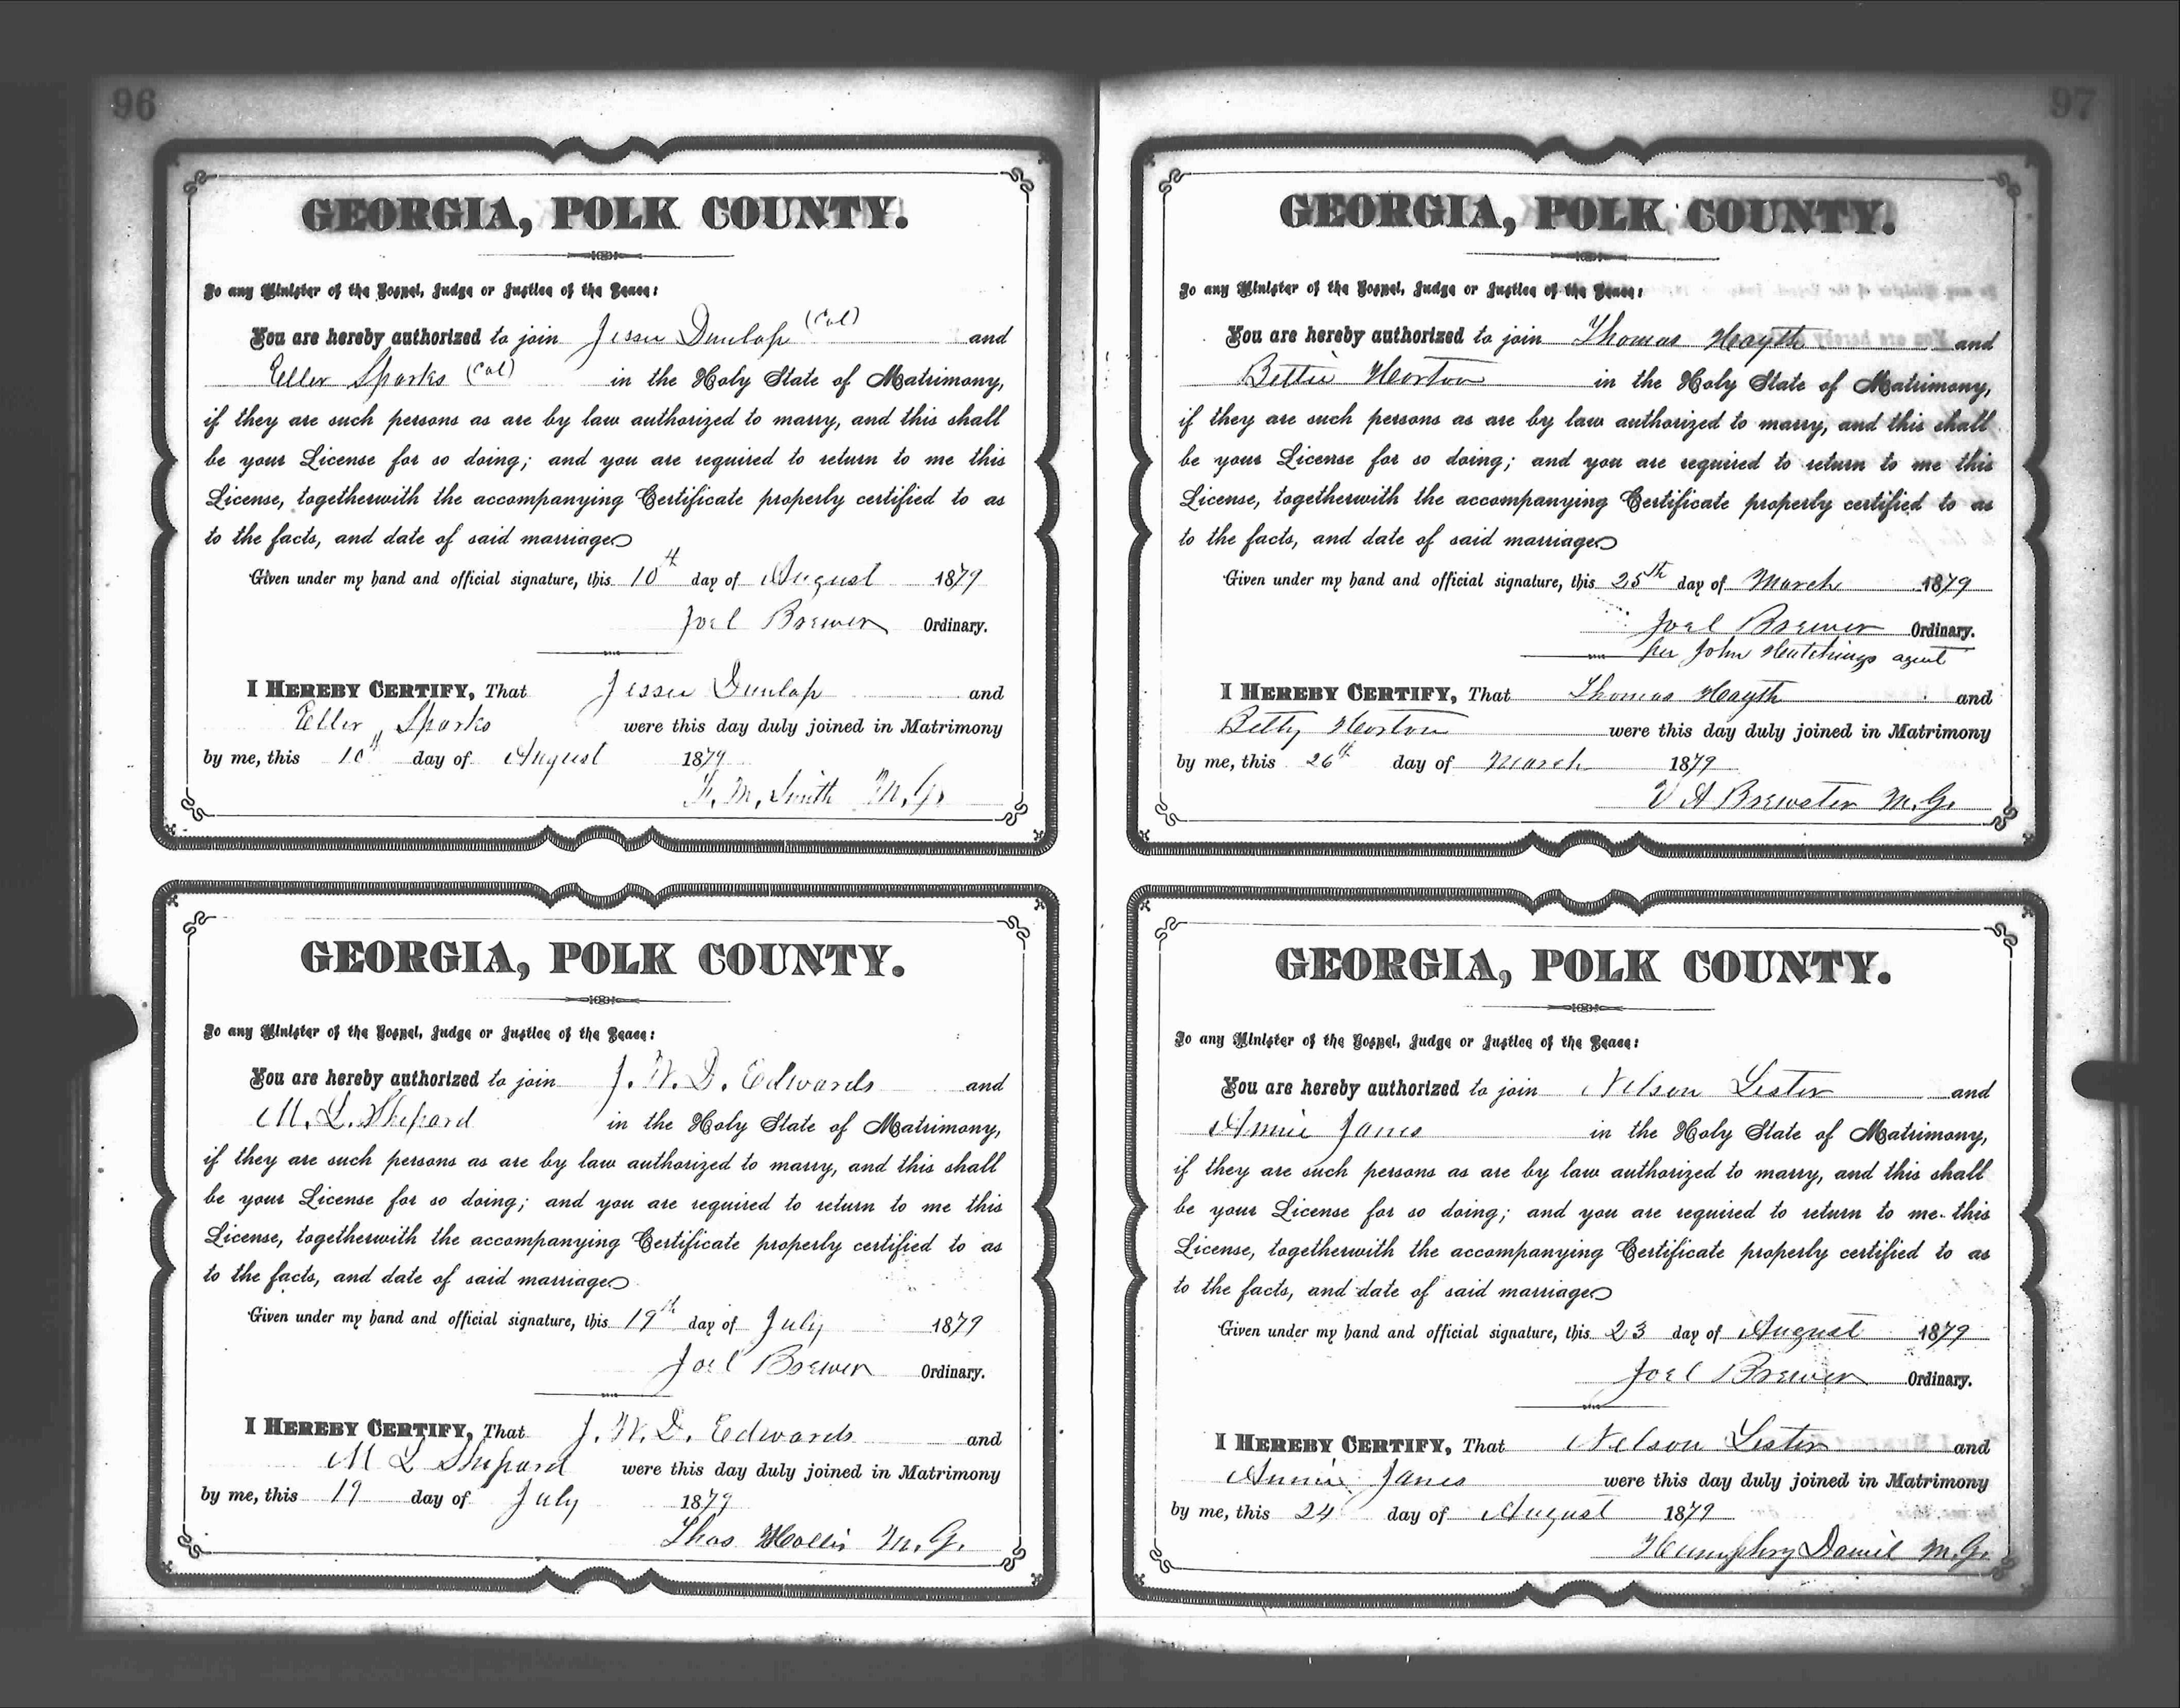 96
GEORGIA, POLK COUNTY.
To any Minister of the Gospel, Judge or Justice of the Peace:
You are hereby authorized to join Jesse Dunlap (Col) and
Eller Sparks (Col) in the Holy State of Matrimony,
if they are such persons as are by law authorized to marry, and this shall
be your License for so doing; and you are required to return to me this
License, togetherwith the accompanying Certificate properly certified to as
to the facts, and date of said marriage
Given under my hand and official signature, this 10th day of August 1879
Joel Brewer Ordinary.
I HEREBY CERTIFY, That Jesse Dunlap and
Eller Sparks were this day duly joined in Matrimony
by me, this 10th day of August 1879
F. M. Smith M.G.
GEORGIA, POLK COUNTY.
To any Minister of the Gospel, Judge or Justice of the Peace:
You are hereby authorized to join J. W. D. Edwards and
M. L. Shepard in the Holy State of Matrimony,
if they are such persons as are by law authorized to marry, and this shall
be your License for so doing; and you are required to return to me this
License, togetherwith the accompanying Certificate properly certified to as
to the facts, and date of said marriage
Given under my hand and official signature, this 19th day of July 1879
Joel Brewer Ordinary.
I HEREBY CERTIFY, That J. W. D. Edwards and
M L Shepard were this day duly joined in Matrimony
by me, this 19 day of July 1879
Thos Hollis M.G.
97
GEORGIA, POLK COUNTY.
To any Minister of the Gospel, Judge or Justice of the Peace:
You are hereby authorized to join Thomas Hayth and
Bettie Horton in the Holy State of Matrimony,
if they are such persons as are by law authorized to marry, and this shall
be your License for so doing; and you are required to return to me this
License, togetherwith the accompanying Certificate properly certified to as
to the facts, and date of said marriage
Given under my hand and official signature, this 25th day of March 1879
Joel Brewer Ordinary.
per John Hutchings agent
I HEREBY CERTIFY, That Thomas Hayth and
Betty Horton were this day duly joined in Matrimony
by me, this 26th day of March 1879
V A Brewster M.G.
GEORGIA, POLK COUNTY.
To any Minister of the Gospel, Judge or Justice of the Peace:
You are hereby authorized to join Nelson Lester and
Annie Janes in the Holy State of Matrimony,
if they are such persons as are by law authorized to marry, and this shall
be your License for so doing; and you are required to return to me this
License, togetherwith the accompanying Certificate properly certified to as
to the facts, and date of said marriage
Given under my hand and official signature, this 23 day of August 1879
Joel Brewer Ordinary.
I HEREBY CERTIFY, That Nelson Lester and
Annie Janes were this day duly joined in Matrimony
by me, this 24 day of August 1879
Humphry Daniel M.G.